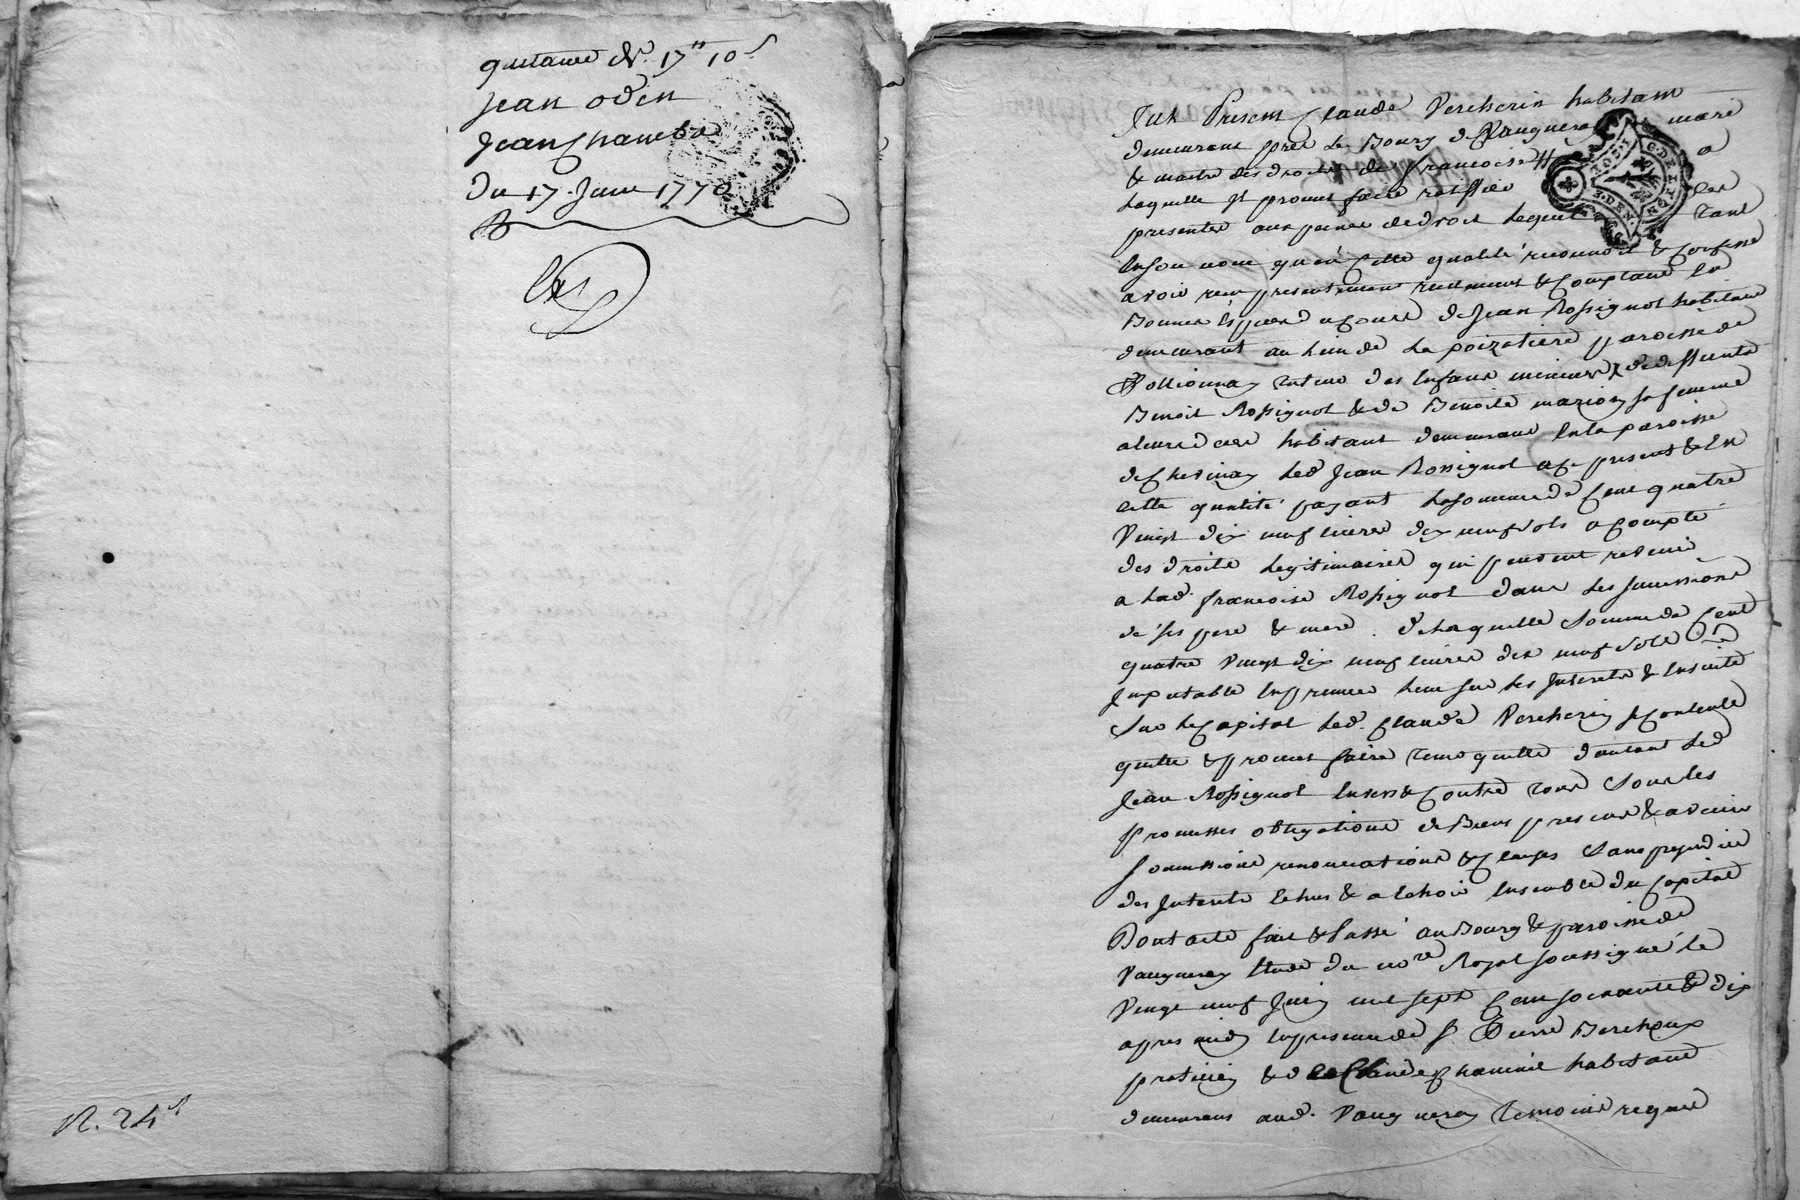 quittance de 17" 10s
Jean odin
Jean Chambe
Du 17 Juin 1770
R. 24s
Fut Present Claude Percherin habitant
demeurant près le Bourg de Vaugneray mari
& maitre des droits de francoise
laquelle Il promet faire ratiffier les
presentes aux peines de droit lequel tant
En son nom qu'en cette qualité reconnoit & confesse
avoir recu presentement réellement & comptant En
Bonnes Espèces ayant cours de Jean Rossignol habitant
demeurant au lieu de La poizatiere paroisse de
Pollionnay tuteur des Enfans mineurs de deffunts
Benoit Rossignol & de Benoite marion sa femme
a leur deces habitant demeurant En la paroisse
de Chevinay led Jean Rossignol a ce present & En
cette qualité payant la somme de Cent quatre
Vingt dix neuf livres dix neuf sols a compte
des droits legitimaires qui peuvent revenir
a lad. francoise Rossignol dans les successions
de ses pere & mere. de laquelle somme de Cent
quatre Vingt dix neuf livres dix neuf sols
Imputable En premier lieu sur les Interets & Ensuite
sur le Capital led. Claude Percherin se Contente
quitte & promet faire tenir quitte d'autant led
Jean Rossignol Envers & Contre tous Sous les
promesses obligations de Biens presens & avenir
soumissions renonciations & Clauses Sans prejudice
des Interets Echus & a Echoir Ensemble du Capital
Dont acte fait & Passé au Bourg & paroisse de
Vaugneray Etude du nore Royal soussigné le
Vingt neuf Juin mil sept Cent soixante & dix
apres midy En presence de sr Pierre Berchoux
praticien & de Claude Chamie habitans
demeurans aud. Vaugneray temoins requis